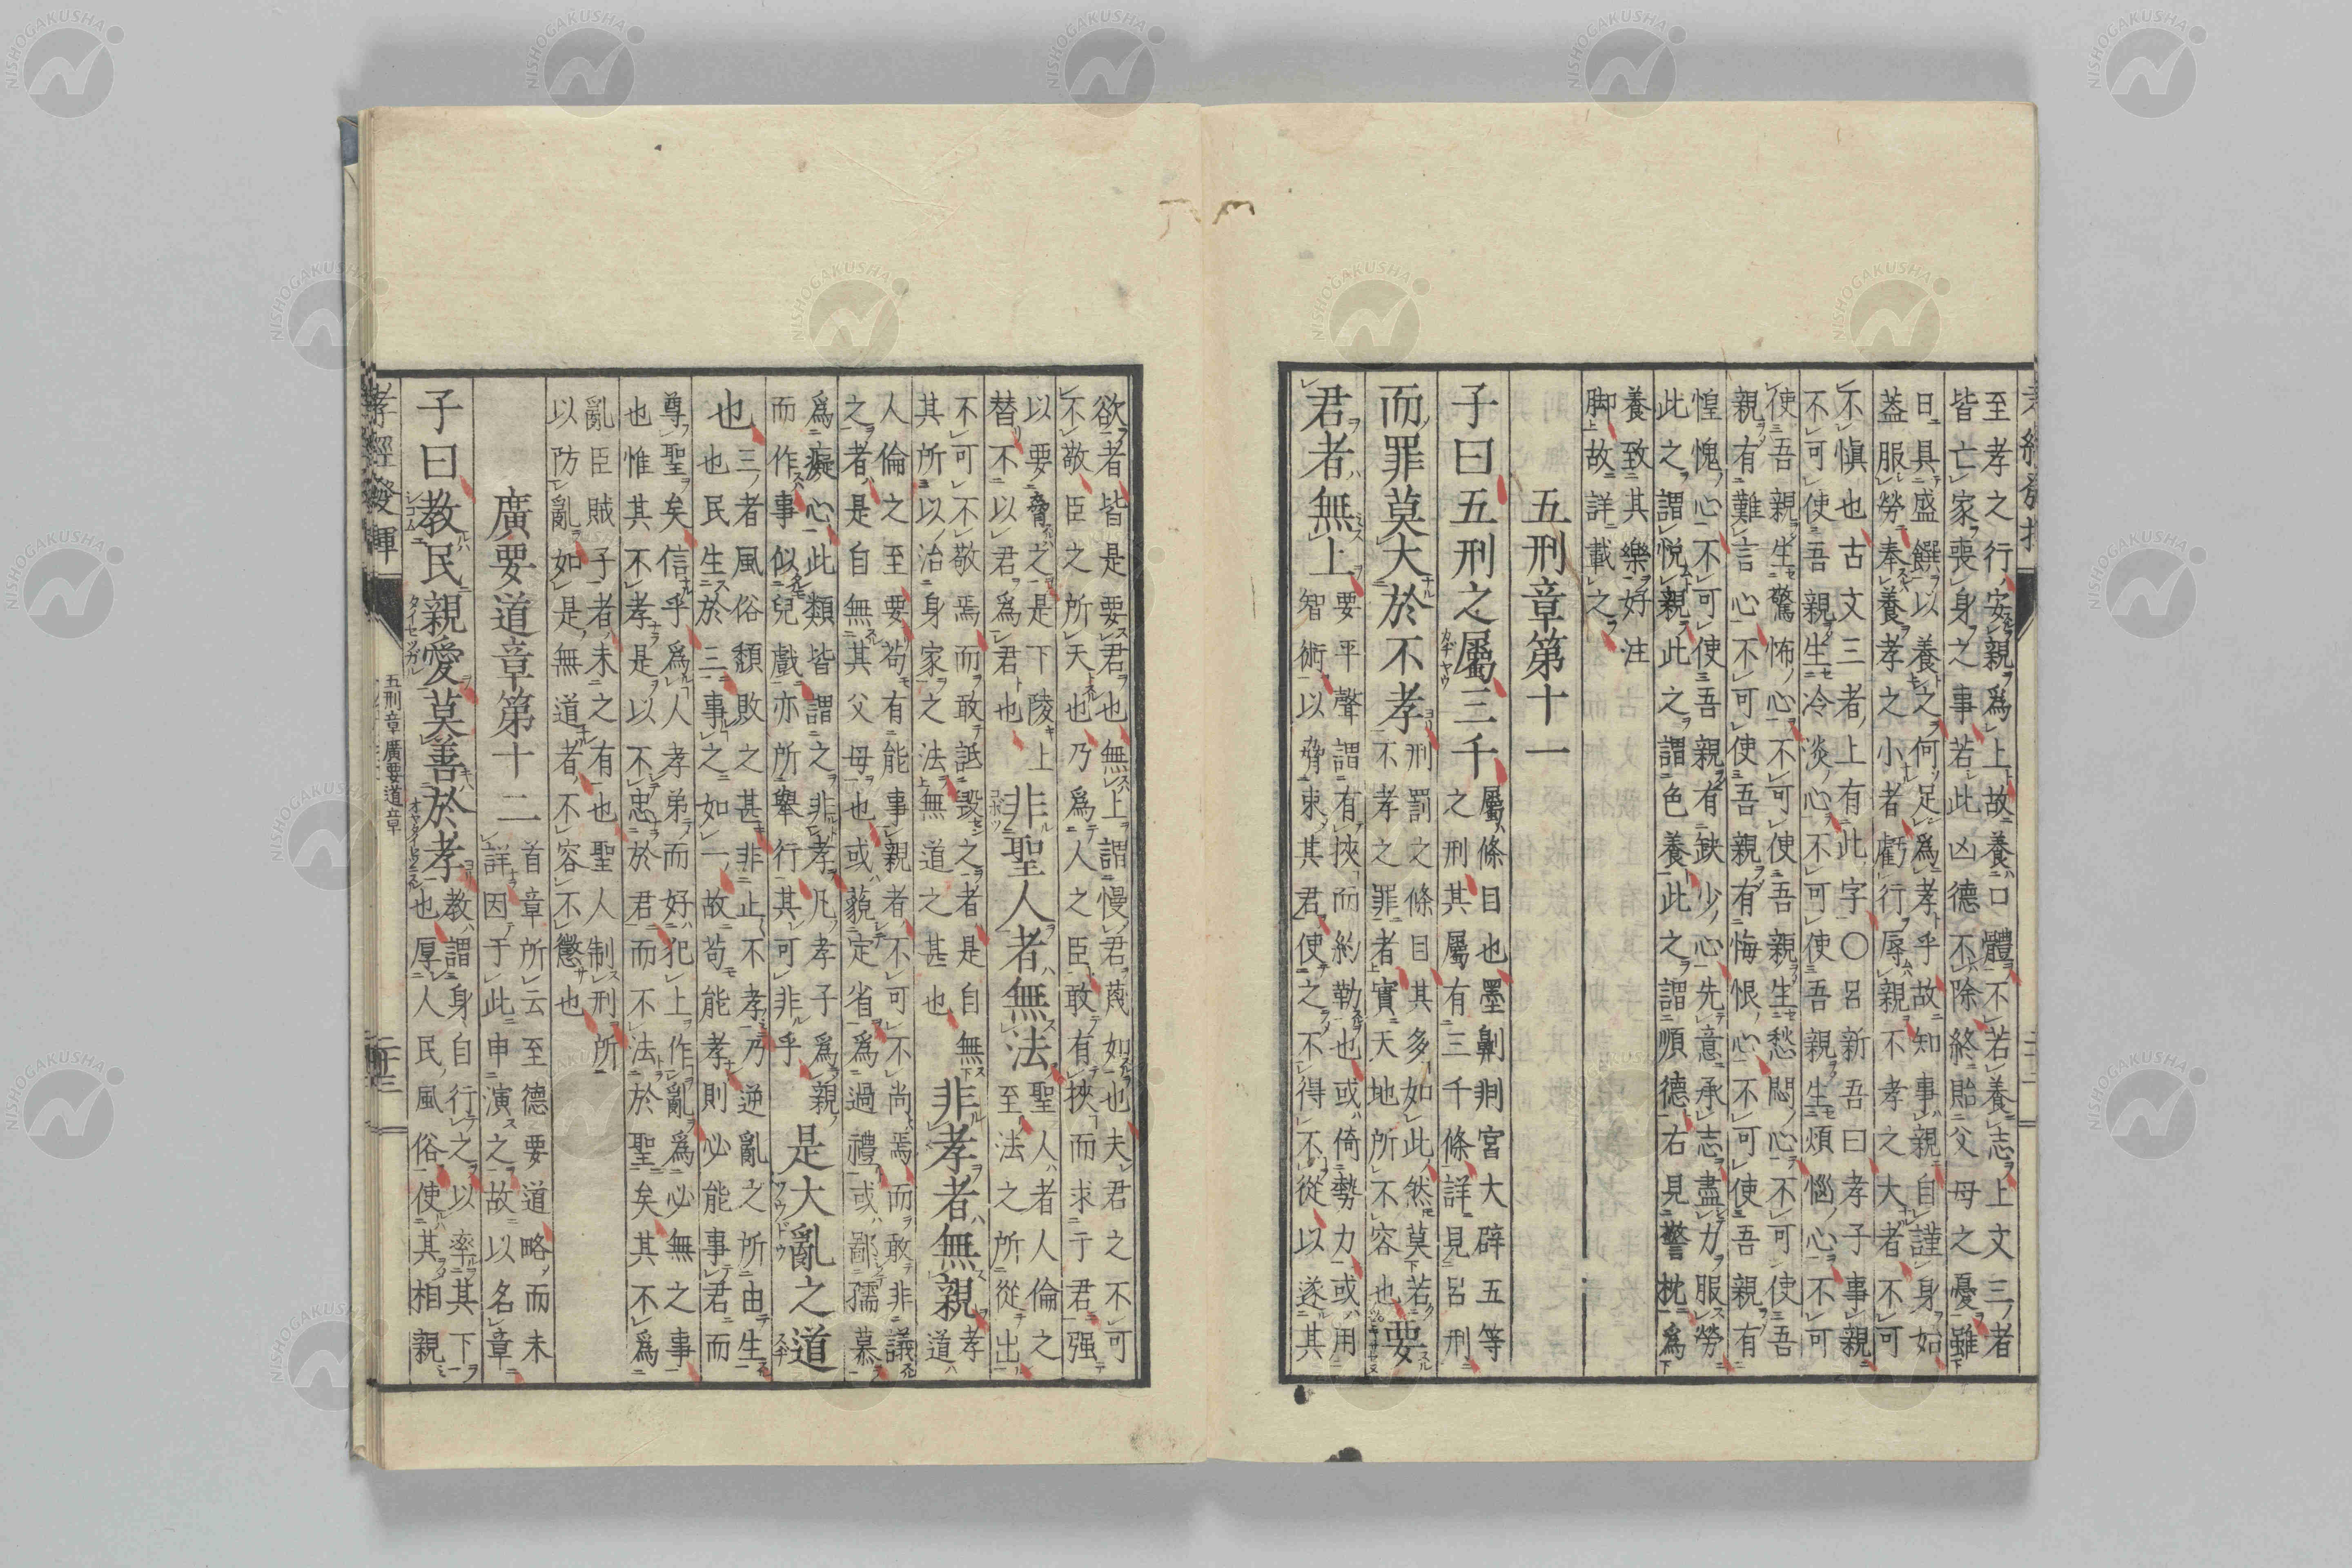 至孝之行安親爲上故養口體不若養志上文三者
皆亡家喪身之事若此凶德不除終貽父母之憂雖
日具盛饌以養之何足爲孝乎故知事親自謹身始
蓋服勞奉養孝之小者虧行辱親不孝之大者不可
不愼也古文三者上有此字〇呂新吾曰孝子事親
不可使吾親生冷淡心不可使吾親生煩惱心不可
使吾親生驚怖心不可使吾親生愁悶心不可使吾
親有難言心不可使吾親有悔恨心不可使吾親有
惶愧心不可使吾親有缺少心先意承志盡力服勞
此之謂悅親此之謂色養此之謂順德右見警枕爲
養致其樂好注
脚故詳載之
五刑章第十一
子曰五刑之屬三千
屬條目也墨劓剕宮大辟五等
之刑其屬有三千條詳見呂刑
而罪莫大於不孝
刑罰之條目其多如此然莫若
不孝之罪者實天地所不容也
要
君者無上
要平聲謂有挾而約勒也或倚勢力或用
智術以脅束其君使之不得不從以遂其
欲者皆是要君也無上謂慢君蔑如也夫君之不可
不敬臣之所天也乃爲人之臣敢有挾而求于君强
以要脅之是下陵上
替不以君爲君也
非聖人者無法
聖人者人倫之
至法之所從出
不可不敬焉而敢詆毀之者是自無
其所以治身家之法無道之甚也
非孝者無親
孝
道
人倫之至要苟有能事親者不可不尚焉而敢非議
之者是自無其父母也或藐定省爲過禮或鄙孺慕
爲癡心此類皆謂之非孝凡孝子爲親
而作事似兒戲亦所舉行其可非乎
是大亂之道
也
三者風俗頹敗之甚非止不孝乃逆亂之所由生
也民生於三事之如一故苟能孝則必能事君而
尊聖矣信乎爲人孝弟而好犯上作亂爲必無之事
也惟其不孝是以不忠於君而不法於聖矣其不爲
亂臣賊子者未之有也聖人制刑所
以防亂如是無道者不容不懲也
廣要道章第十二
首章所云至德要道略而未
詳因于此申演之故以名章
子曰教民親愛莫善於孝
教謂身自行之以率其下
也厚人民風俗使其相親
孝經發揮
五刑章廣要道章
二十三